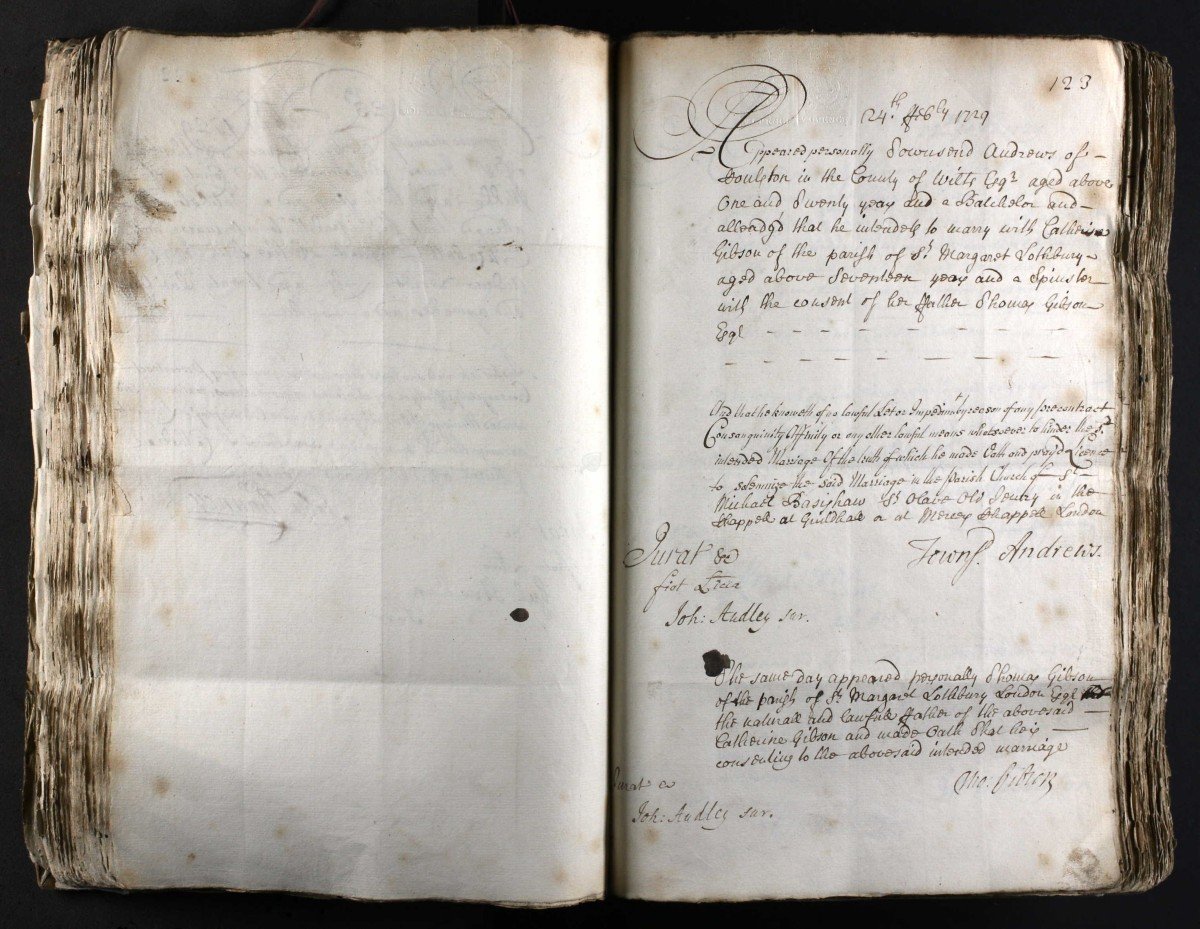 123
24th ffebry 1729
Appeared personally Townsend Andrews of
in the County of Wilts Esqr aged above
One and Twenty years and a Batchelor and
alledg'd that he intendeth to marry with Catherine
Gibson of the parish of St Margaret Lothbury
aged above Seventeen years and a Spinster
with the consent of her ffather Thomas Gibson
Esqr
And that he knoweth of no lawful Let or Impedimt by reason of any precontract
Consanguinity Affinity or any other lawful means whatsoever to hinder the sd
intended Marriage Of the truth of which he made Oath and pray'd Licence
to solemnize the said Marriage in the Parish Church of St
Michael Basishaw St Olave Old Jewry in the
Chappell at Guildhall or at Mercers Chappell London
Jurat &c
Townsd. Andrews.
fiat
Joh: Audley sur.
The same day appeared personally Thomas Gibson
of the parish of St Margaret Lothbury London Esqr
the naturall and lawfull ffather of the abovesaid
Catherine Gibson and made Oath that he is
consenting to the abovesaid intended marriage
Jurat &c
Tho. Gibson
Joh: Audley sur.